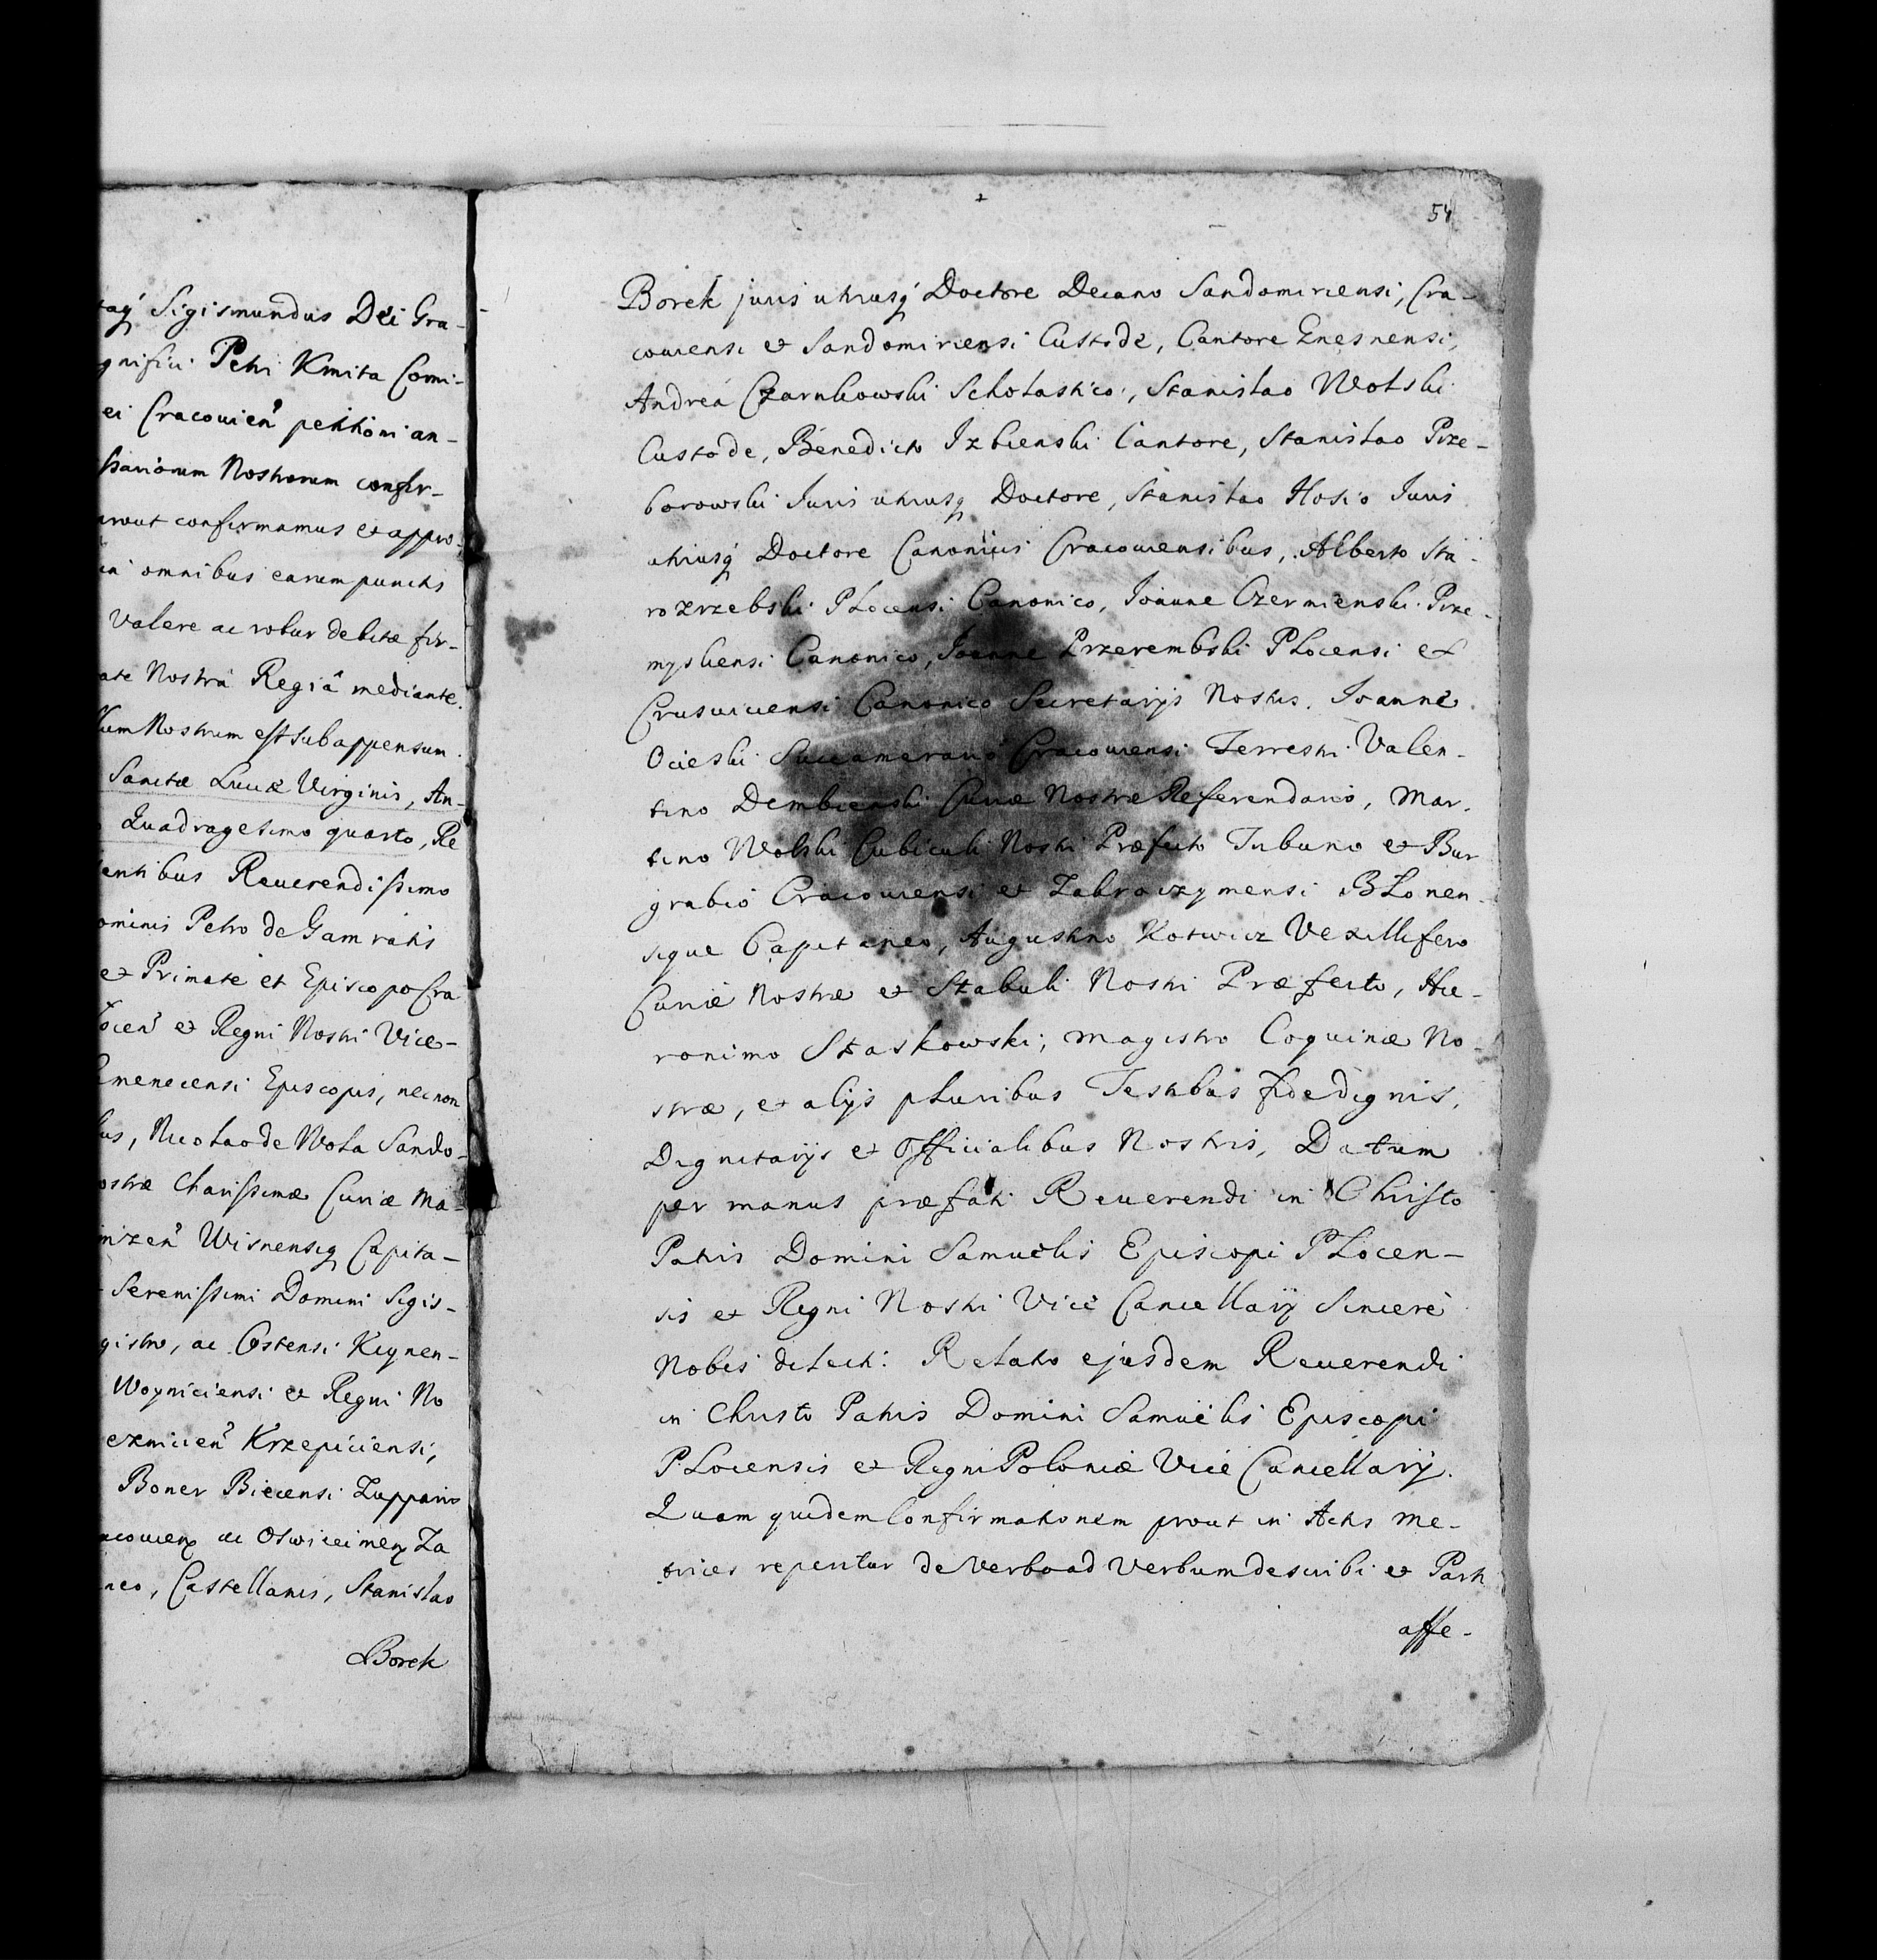 taq́ Sigismundus Dei Gra-
gnifici Petri Kmita Comi-
ei Cracouien̉ petitioni an-
ssariorum Nostrorum confir-
prout confirmamus et appro-
in omnibus earum punctis
Valere ac robur debitæ fir-
ate Nostrâ Regiâ mediante.
llum Nostrum est subappensum.
Sanctæ Luciæ Virginis, An-
Quadragesimo quarto, Re
entibus Reuerendissimo
ominis Petro de Gamratis
et Primate et Episcopo Cra
ocien̉ et Regni Nostri Vice-
Camenecensi Episcopis, necnon
bus, Nicolao de Wola Sando-
ostræ Charissimæ Curiæ Ma-
mzen̉ Wisnensiq Capita-
Serenissimi Domini Sigis-
gistro, ac Costensi Kcynen-
Woyniciensi et Regni No
ezmicien̉ Krzepiciensi,
Boner Biecensi Zuppario
acouien ac Oswieimen Za
neo, Castellanis, Stanislao
Borek
54
Borek juris utriusq́ Doctore Decano Sandomiriensi, Cra-
couiensi et Sandomiriensi Custode, Cantore Gnesnensi,
Andrea Czarnkowski Scholastico, Stanislao Wolski
Custode, Benedicto Izbienski Cantore, Stanislao Prze-
borowski Juris utriusq Doctore, Stanislao Hosio Juris
utriusq́ Doctore Canonicis Cracouiensibus, Alberto Sta-
rozrzebski Plocensi Canonico, Joanne Czermienski Prze-
mysliensi Canonico, Joanne Przerembski Plocensi et
Crusuicensi Canonico Secretarijs Nostris. Joanne
Ocieski Succamerario Cracouiensi Terrestri Valen-
tino Dembienski Curiæ Nostræ Referendario, Mar-
tino Wolski Cubiculi Nostri Præfecto Tribuno et Bur
grabio Cracouiensi et Zakroczymensi Blonen-
sique Capitaneo, Augustino Kotwicz Vexillifero
Curiæ Nostræ et Stabuli Nostri Præfecto, Hie-
ronimo Staskowski, Magistro Coquinæ No-
stræ, et alijs pluribus Testibus fidedignis,
Dignitarijs et Officialibus Nostris, Datum
per manus præfati Reuerendi in Christo
Patris Domini Samuelis Episcopi Plocen-
sis et Regni Nostri Vice Cancellarij Sincerè
Nobis dilecti. Relatio ejusdem Reuerendi
in Christo Patris Domini Samuelis Episcopi
Plocensis et Regni Poloniæ Vice Cancellarij.
Quam quidem Confirmationem prout in Actis Me-
trices reperitur de Verbo ad Verbum describi et Parti
affe-